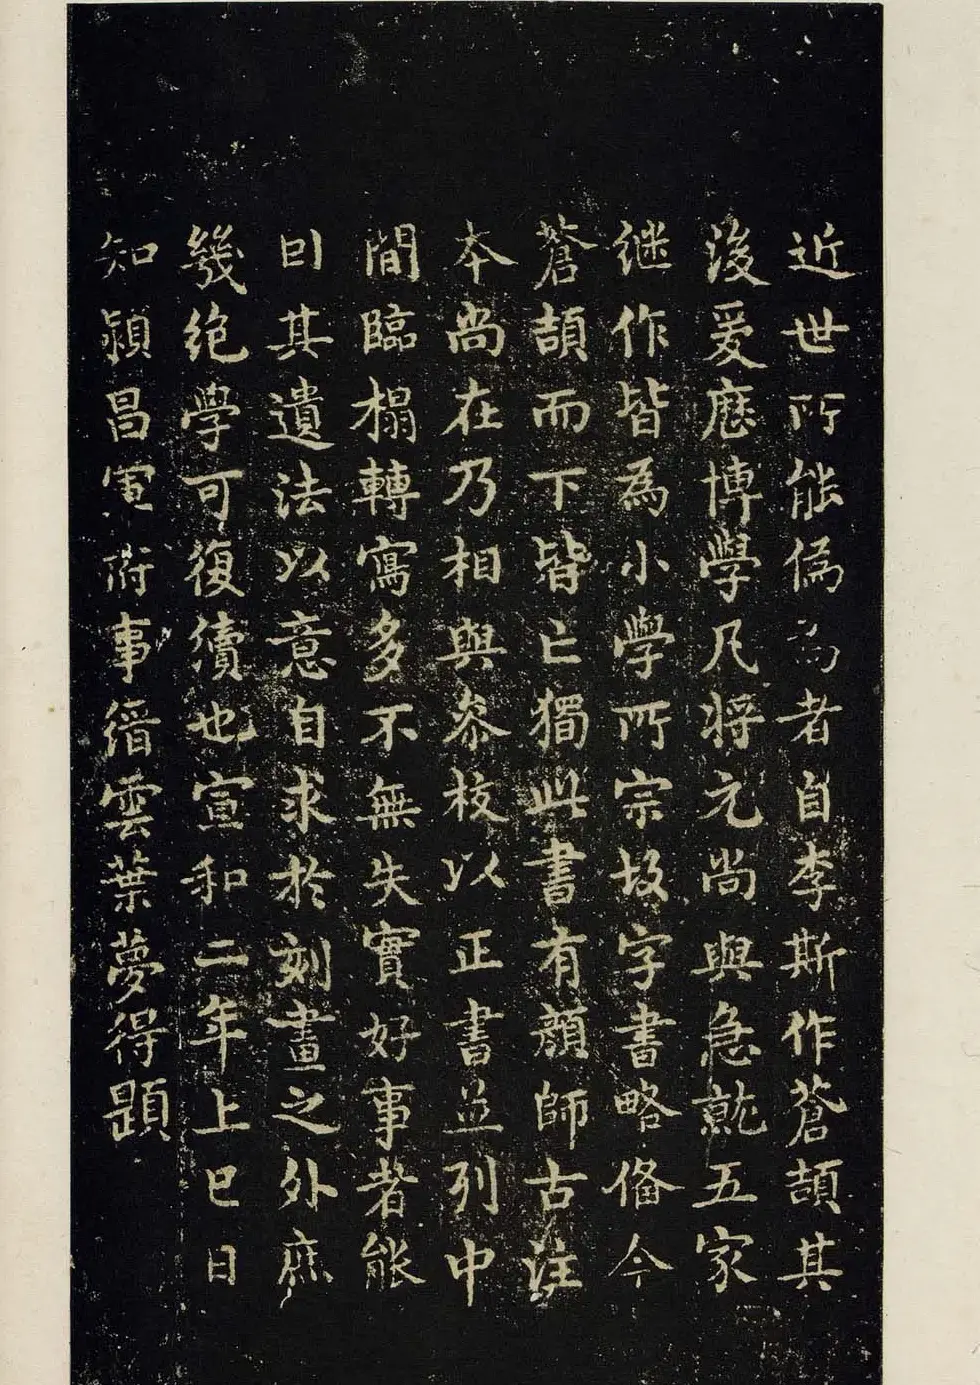 近世所能偽為者自李斯作蒼頡其
後爰歷博學凡將元尚與急就五家
继作皆為小學所宗故字書略俻今
蒼頡而下皆亡獨此書有顏師古注
本尚在乃相與叅校以正書並列中
間臨榻轉寫多不無失實好事者能
囙其遺法以意自求於刻畫之外庶
幾絶學可復續也宣和二年上巳日
知潁昌軍府事縉雲葉夢得題